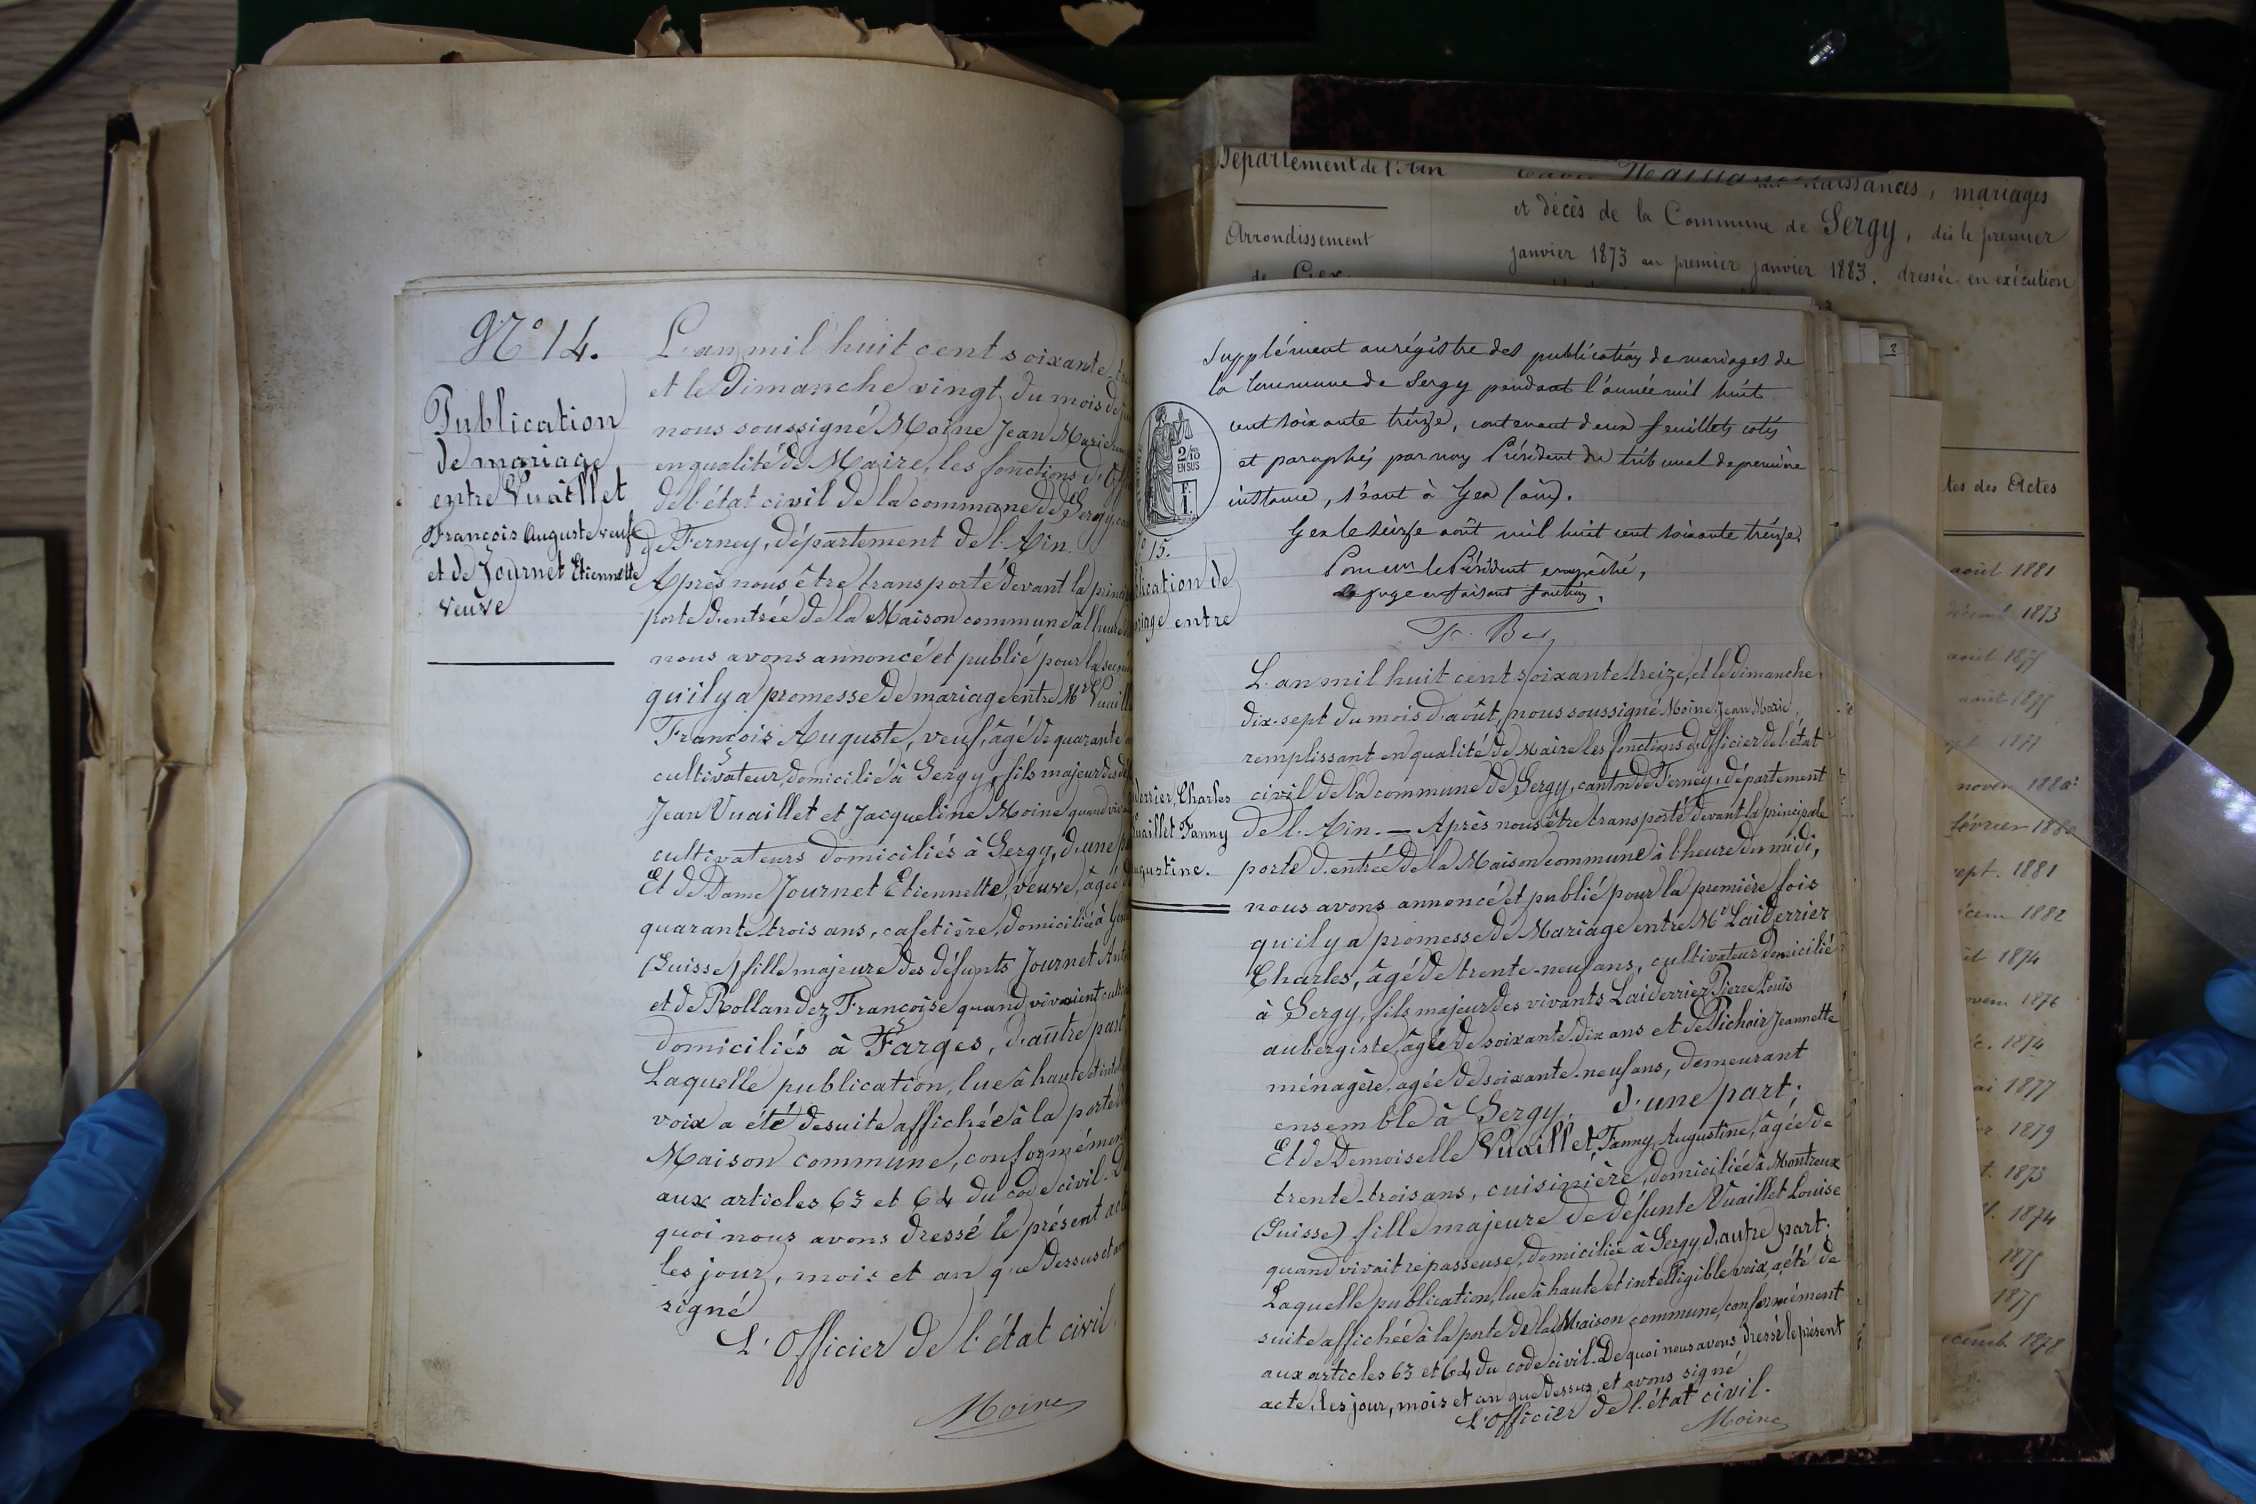 N° 14.
Publication
de mariage
entre Vuaillet
François Auguste veuf
et de Journet Etiennette
veuve
L'an mil huit cent soixante
et le Dimanche vingt du mois de
nous soussigné Moine Jean Marie
en qualité de Maire, les fonctions d'
de l'état civil de la commune de Sergy
de Ferney, département de l'Ain.
Après nous être transporté devant la
porte d'entrée de la Maison commune à l'heure
nous avons annoncé et publié pour la
qu'il y a promesse de mariage entre Mr
François Auguste, veuf, âgé de quarante
cultivateur, domicilié à Sergy, fils majeur des
Jean Vuaillet et Jacqueline Moine quand
cultivateurs domiciliés à Sergy, d'une
Et de Dame Journet Etiennette, veuve, âgée
quarante-trois ans, cafetière, domiciliée à
(Suisse) fille majeure des défunts Journet
et de Rollandez Françoise quand vivaient
domiciliés à Farges, d'autre part
Laquelle publication, lue à haute et
voix a été desuite affichée à la porte
Maison commune, conformément
aux articles 63 et 64 du code civil. De
quoi nous avons dressé le présent acte
les jour, mois et an que dessus et
signé
L'Officier de l'état civil.
Moine
Département de l'Ain
Arrondissement
de Gex
naissances, mariages
et décès de la Commune de Sergy, dès le premier
janvier 1873 au premier janvier 1883, dressée en exécution
Supplément au régistre des publications de mariages de
la Commune de Sergy pendant l'année mil huit
cent soixante treize, contenant deux feuillets cotés
et paraphés par nous Président du tribunal de première
instance, séant à Gex (ain).
Gex le seize août mil huit cent soixante treize.
Pour le Président empêché,
Le juge en faisant fonction,
2/10
EN SUS
F.
1.
15.
lication de
riage entre
errier, Charles
uaillet Fanny
ugustine.
L'an mil huit cent soixante-treize, et le dimanche
dix-sept du mois d'août, nous soussigné Moine Jean Marie,
remplissant en qualité de Maire les fonctions d'Officier de l'état
civil de la commune de Sergy, canton de Ferney, département
de l'Ain. — Après nous être transporté devant la principale
porte d'entrée de la Maison commune à l'heure de midi,
nous avons annoncé et publié pour la première fois
qu'il y a promesse de Mariage entre Mr Laiderrier
Charles, âgé de trente-neuf ans, cultivateur domicilié
à Sergy, fils majeur des vivants Laiderrier Pierre Louis
aubergiste, âgé de soixante-dix ans et de Pichoir Jeannette
ménagère, agée de soixante-neuf ans, demeurant
ensemble à Sergy, d'une part;
Et de Demoiselle Vuaillet, Fanny, Augustine, âgée de
trente-trois ans, cuisinière, domiciliée à Montreux
(Suisse) fille majeure de défunte Vuaillet Louise
quand vivait repasseuse, domiciliée à Sergy, d'autre part;
Laquelle publication, lue à haute et intelligible voix, a été de
suite affichée à la porte de la Maison commune, conformément
aux articles 63 et 64 du code civil. De quoi nous avons dressé le présent
acte, les jour, mois et an que dessus, et avons signé
L'Officier de l'état civil.
Moine
tes des Actes
août 1881
1873
août 1875
août 1875
1877
novem 1880
février 1880
sept. 1881
1882
1874
1876
1874
1877
1879
1873
1874
1875
1875
1878